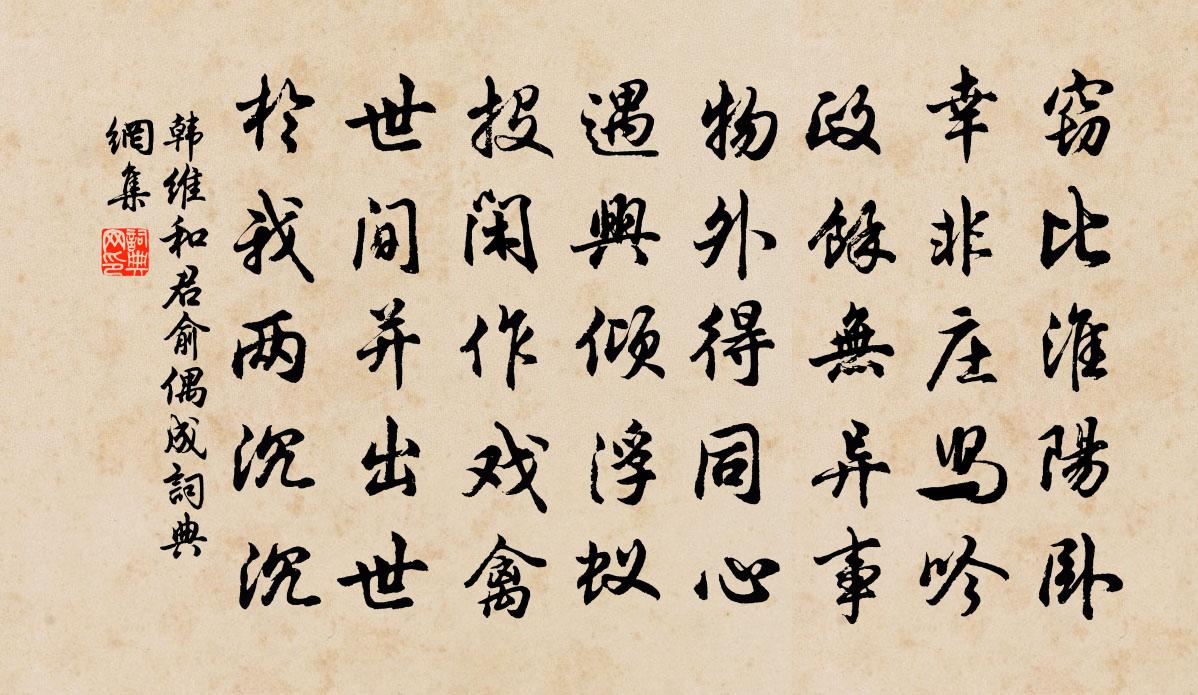 窃比淮陽卧
幸非庄舄吟
政餘無异事
物外得同心
遇興傾浮蚁
投闲作戏禽
世间并出世
於我两沉沉
韩维和君俞偶成詞典
網集
詞典
网印